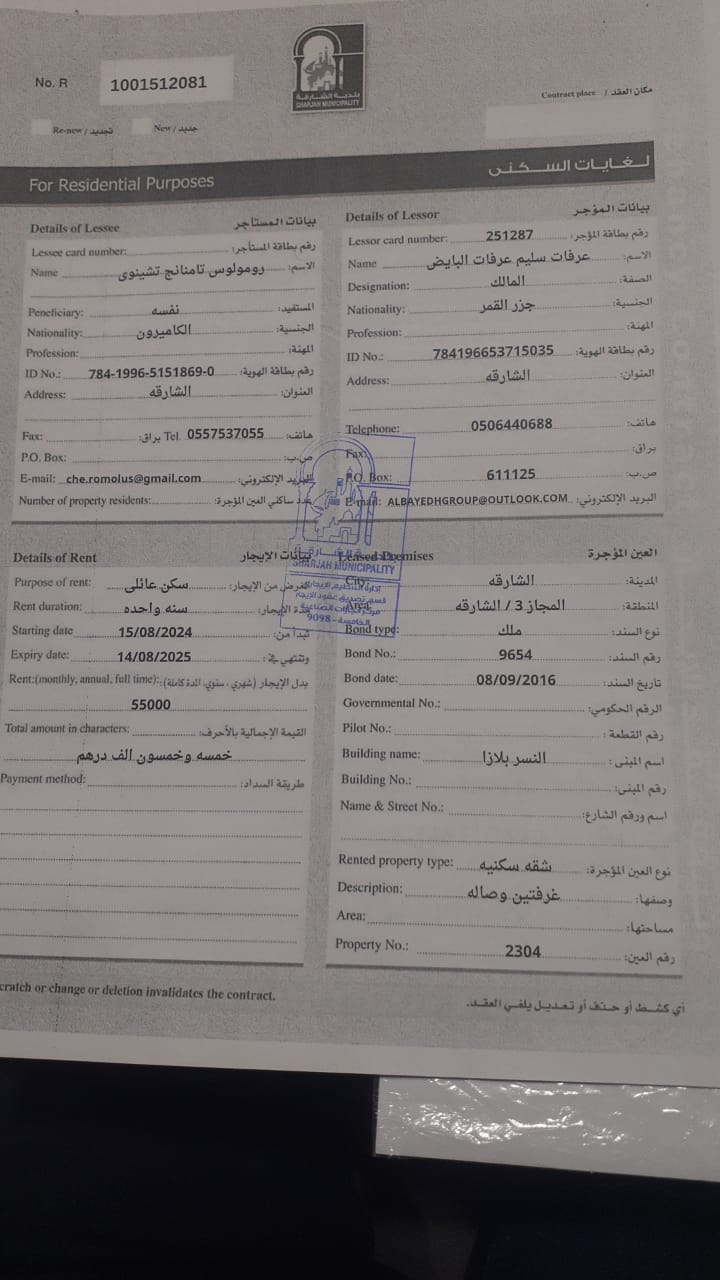 No. R 1001512081
بلدية الشارقة
SHARJAH MUNICIPALITY
Contract place / مكان العقد
Re-new / تجديد New / جديد
For Residential Purposes لغايات السكنى
Details of Lessee بيانات المستأجر
Lessee card number: رقم بطاقة المستأجر:
Name رومولوس تامنانج تشينوى الاسم:
Peneficiary: نفسه المستفيد:
Nationality: الكاميرون الجنسية:
Profession: المهنة:
ID No.: 784-1996-5151869-0 رقم بطاقة الهوية:
Address: الشارقه العنوان:
Fax: براق: Tel 0557537055 هاتف:
P.O. Box: ص.ب:
E-mail: che.romolus@gmail.com البريد الإلكتروني:
Number of property residents: عدد ساكني العين المؤجرة:
Details of Lessor بيانات المؤجر
Lessor card number: 251287 رقم بطاقة المؤجر:
Name عرفات سليم عرفات البايض الاسم:
Designation: المالك الصفة:
Nationality: جزر القمر الجنسية:
Profession: المهنة:
ID No.: 784196653715035 رقم بطاقة الهوية:
Address: الشارقه العنوان:
Telephone: 0506440688 هاتف:
Fax: براق:
P.O. Box: 611125 ص.ب:
E-mail: ALBAYEDHGROUP@OUTLOOK.COM البريد الإلكتروني:
SHARJAH MUNICIPALITY
9098
Details of Rent بيانات الإيجار
Purpose of rent: سكن عائلى الغرض من الإيجار:
Rent duration: سنه واحده مدة الإيجار:
Starting date 15/08/2024 تبدأ من:
Expiry date: 14/08/2025 وتنتهي في:
Rent:(monthly, annual, full time): بدل الإيجار (شهري، سنوي، المدة كاملة):
55000
Total amount in characters: القيمة الإجمالية بالأحرف:
خمسه وخمسون الف درهم
Payment method: طريقة السداد:
Leased Premises العين المؤجرة
City: الشارقه المدينة:
Area: المجاز 3 / الشارقه المنطقة:
Bond type: ملك نوع السند:
Bond No.: 9654 رقم السند:
Bond date: 08/09/2016 تاريخ السند:
Governmental No.: الرقم الحكومي:
Pilot No.: رقم القطعة :
Building name: النسر بلازا اسم المبنى :
Building No.: رقم المبنى:
Name & Street No.: اسم ورقم الشارع:
Rented property type: شقه سكنيه نوع العين المؤجرة:
Description: غرفتين وصاله وصفها:
Area: مساحتها:
Property No.: 2304 رقم العين:
cratch or change or deletion invalidates the contract. أي كشط أو حذف أو تعديل يلغي العقد.